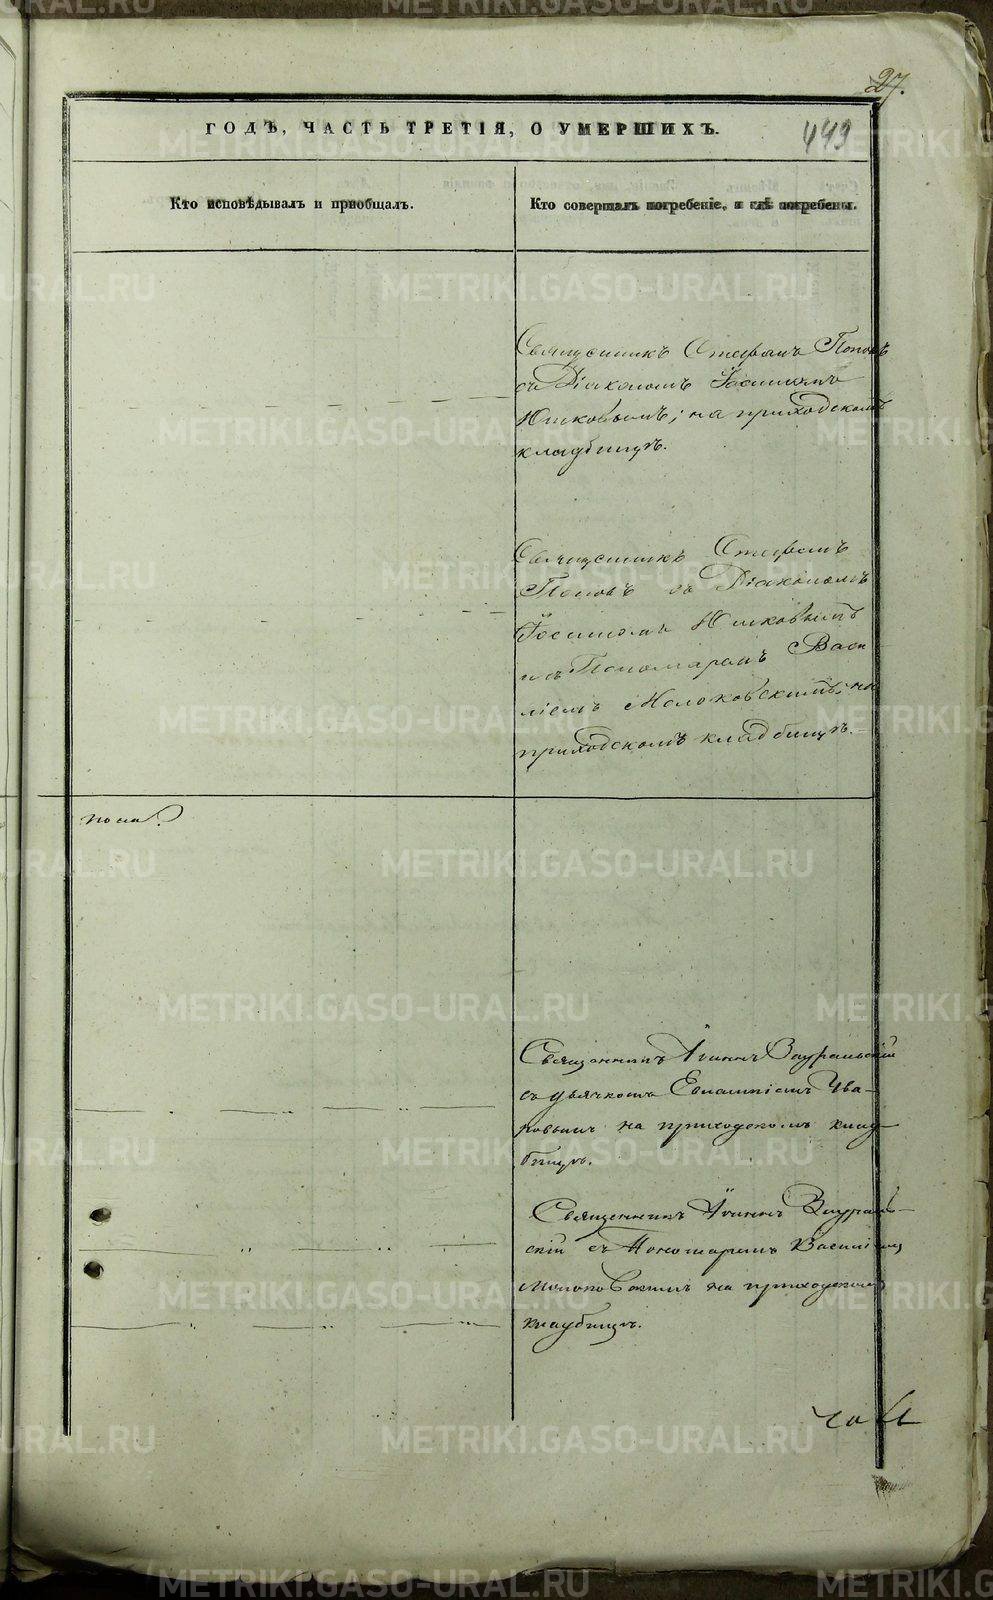 27.
449
ГОДЪ, ЧАСТЬ ТРЕТІЯ, О УМЕРШИХЪ.
Кто исповѣдывалъ и приобщалъ.
Кто совершалъ погребеніе, и гдѣ погребены.
Священникъ Стефанъ Поповъ
съ Діакономъ Іоанномъ
Юшковымъ; на приходскомъ
кладбищѣ.
Священникъ Стефанъ
Поповъ съ Діакономъ
Іоанномъ Юшковымъ
и съ Пономаремъ Васи
ліемъ Молоковскимъ; на
приходскомъ кладбищѣ.
Священникъ Іоаннъ Зауральскій
съ дьячкомъ Евлампіемъ Ува-
ровымъ на приходскомъ клад-
бищѣ.
Священникъ Іоаннъ Заураль-
скій съ Пономаремъ Василіемъ
Молоковскимъ на приходскомъ
кладбищѣ.
METRIKI.GASO-URAL.RU